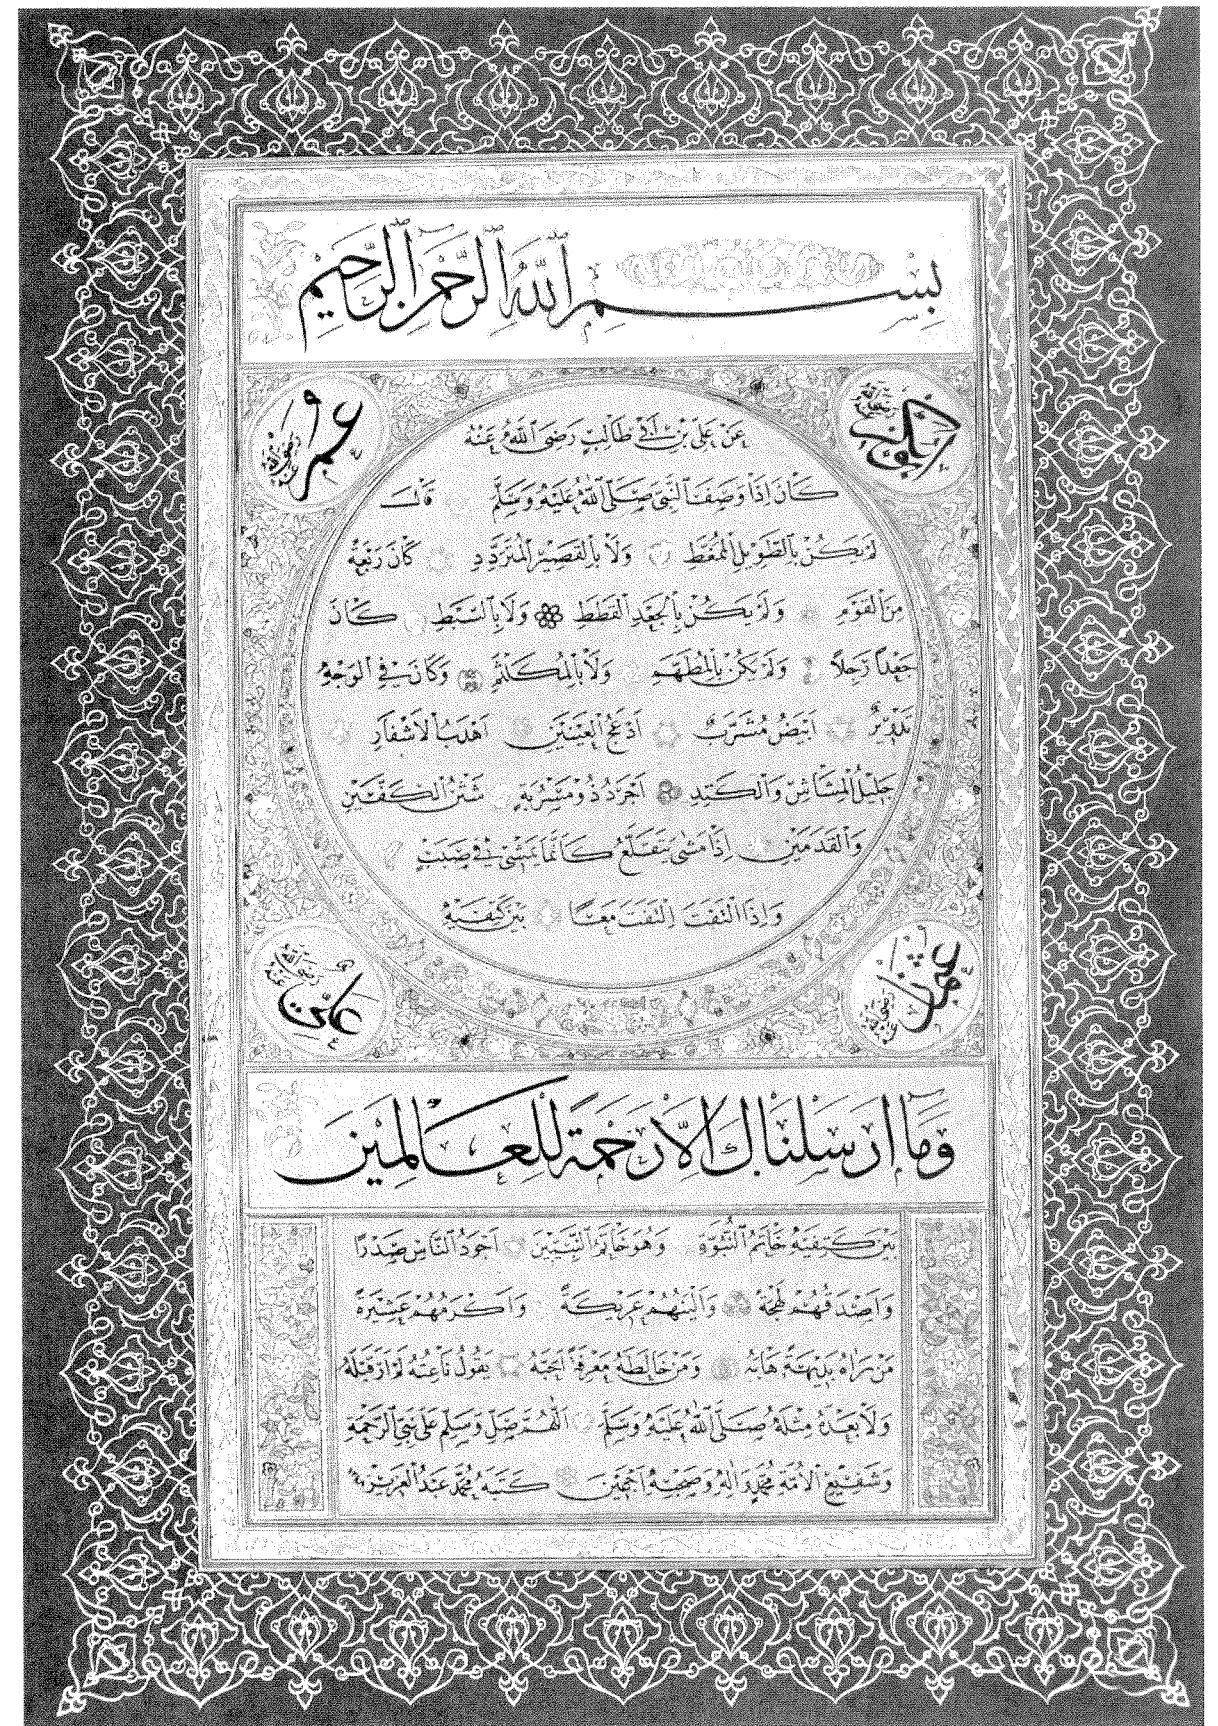 بِسْمِ اللَّهِ الرَّحْمَنِ الرَّحِيمِ
ابوبكر رضي الله عنه
عمر رضي الله عنه
عَنْ عَلِيِّ بْنِ أَبِي طَالِبٍ رَضِيَ اللَّهُ عَنْهُ
كَانَ إِذَا وَصَفَ النَّبِيَّ صَلَّى اللَّهُ عَلَيْهِ وَسَلَّمَ قَالَ
لَمْ يَكُنْ بِالطَّوِيلِ الْمُمَّغِطِ وَلَا بِالْقَصِيرِ الْمُتَرَدِّدِ كَانَ رَبْعَةً
مِنَ الْقَوْمِ وَلَمْ يَكُنْ بِالْجَعْدِ الْقَطَطِ وَلَا بِالسَّبْطِ كَانَ
جَعْدًا رَجِلًا وَلَمْ يَكُنْ بِالْمُطَهَّمِ وَلَا بِالْمُكَلْثَمِ وَكَانَ فِي الْوَجْهِ
تَدْوِيرٌ أَبْيَضُ مُشْرَبٌ أَدْعَجُ الْعَيْنَيْنِ أَهْدَبُ الْأَشْفَارِ
جَلِيلُ الْمُشَاشِ وَالْكَتَدِ أَجْرَدُ ذُو مَسْرُبَةٍ شَثْنُ الْكَفَّيْنِ
وَالْقَدَمَيْنِ إِذَا مَشَى يَتَقَلَّعُ كَأَنَّمَا يَمْشِي فِي صَبَبٍ
وَإِذَا الْتَفَتَ الْتَفَتَ مَعًا بَيْنَ كَتِفَيْهِ
عثمان رضي الله عنه
علي رضي الله عنه
وَمَا أَرْسَلْنَاكَ إِلَّا رَحْمَةً لِلْعَالَمِينَ
بَيْنَ كَتِفَيْهِ خَاتَمُ النُّبُوَّةِ وَهُوَ خَاتَمُ النَّبِيِّينَ أَجْوَدُ النَّاسِ صَدْرًا
وَأَصْدَقُهُمْ لَهْجَةً وَأَلْيَنُهُمْ عَرِيكَةً وَأَكْرَمُهُمْ عَشِيرَةً
مَنْ رَآهُ بَدِيهَةً هَابَهُ وَمَنْ خَالَطَهُ مَعْرِفَةً أَحَبَّهُ يَقُولُ نَاعِتُهُ لَمْ أَرَ قَبْلَهُ
وَلَا بَعْدَهُ مِثْلَهُ صَلَّى اللَّهُ عَلَيْهِ وَسَلَّمَ اللَّهُمَّ صَلِّ وَسَلِّمْ عَلَى نَبِيِّ الرَّحْمَةِ
وَشَفِيعِ الْأُمَّةِ مُحَمَّدٍ وَآلِهِ وَصَحْبِهِ أَجْمَعِينَ كَتَبَهُ مُحَمَّد عَبْدُ الْعَزِيز